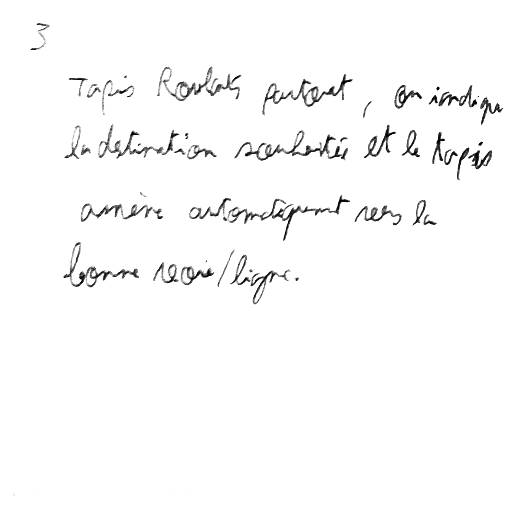 3
Tapis Roulants partout, on indique
la destination souhaitée et le tapis
amène automatiquement vers la
bonne voie/ligne.